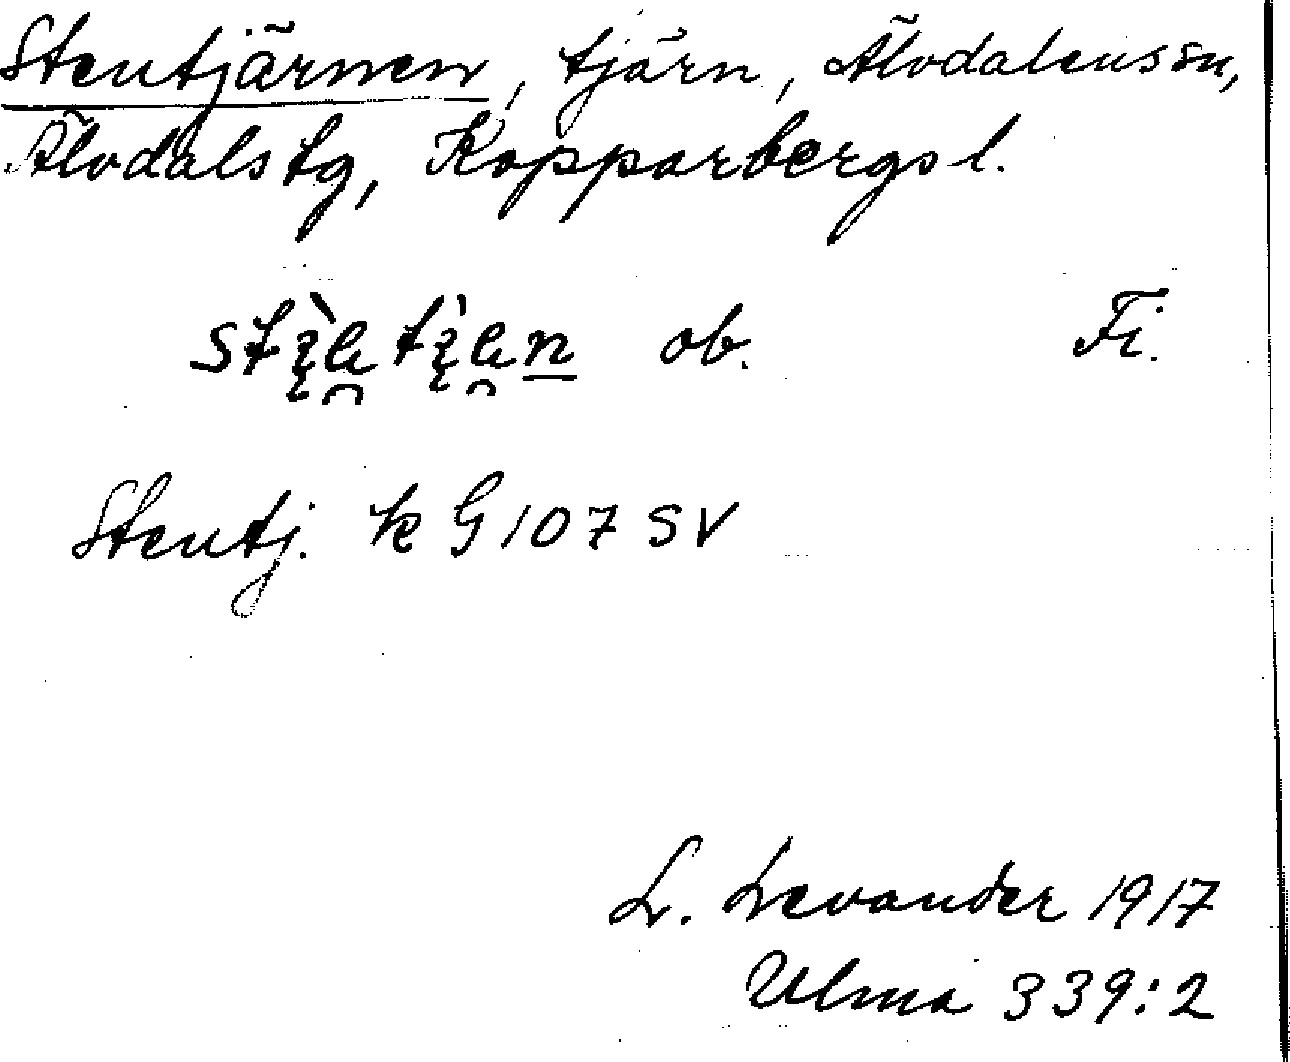 Stentjärnen, tjärn, Älvdalens sn,
Älvdals tg, Kopparbergs l.
ob. Fi.
Stentj. k G 107 SV
L. Levander 1917
Ulma 339:2